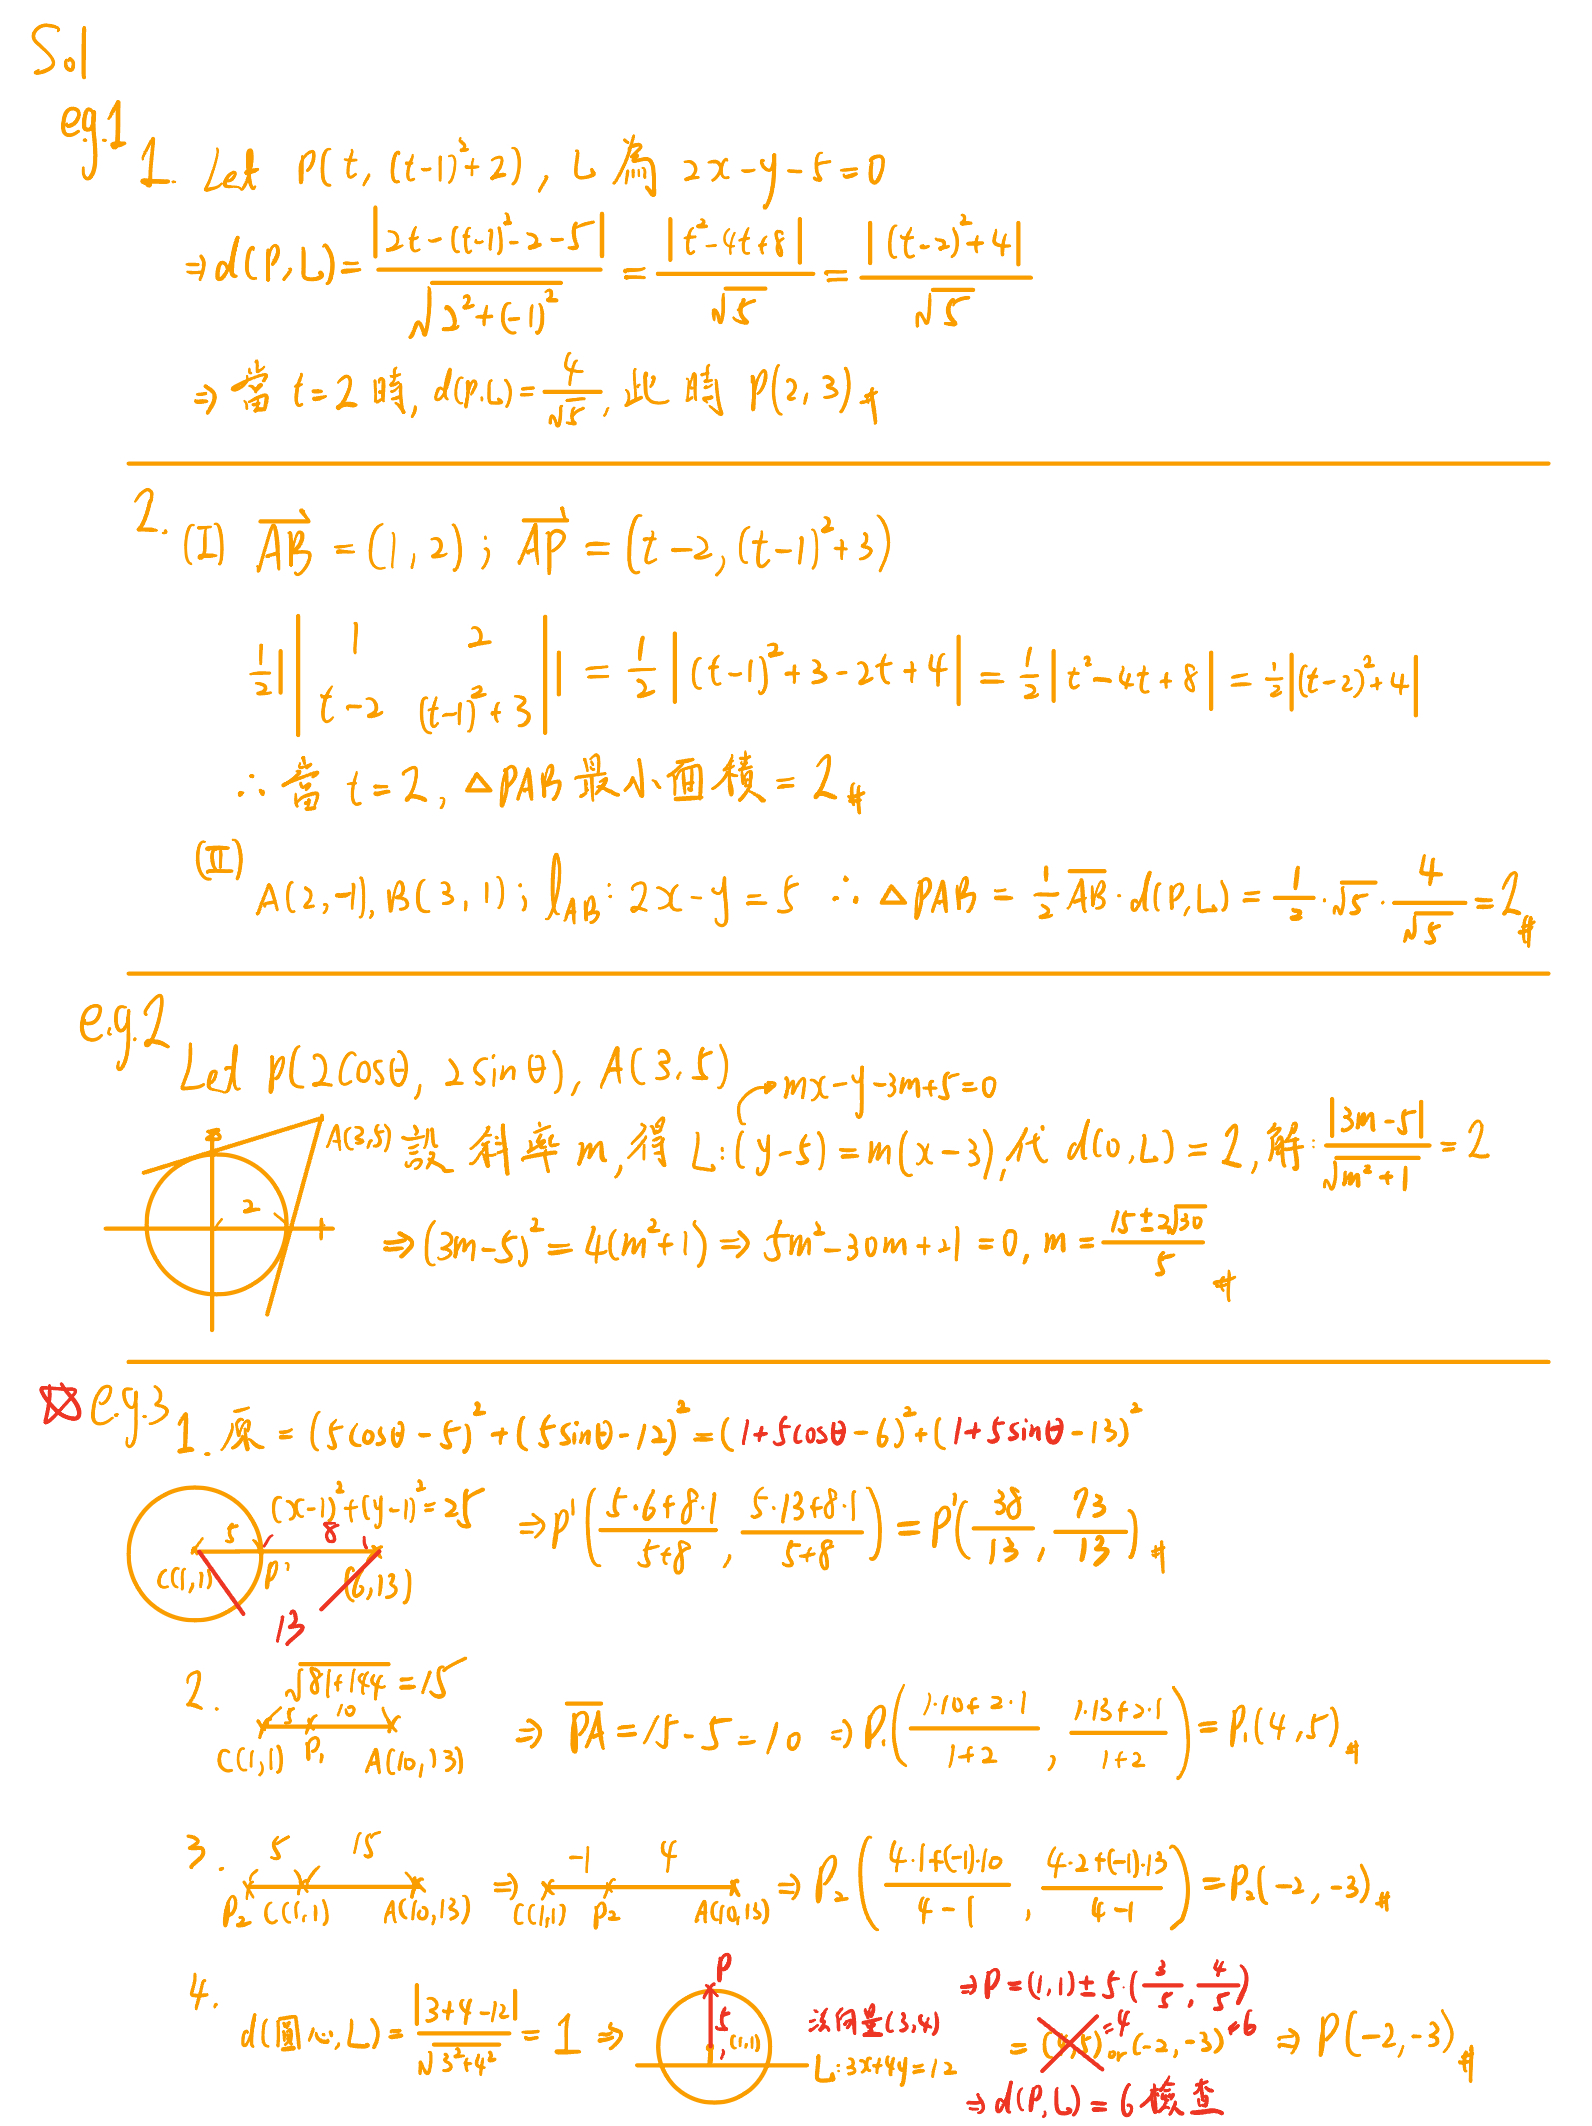 Sol
e.g.1
1. Let P(t, (t-1)²+2), L 為 2x-y-5=0
⇒ d(P,L) = |2t-(t-1)²-2-5| / √(2²+(-1)²) = |t²-4t+8| / √5 = |(t-2)²+4| / √5
⇒ 當 t=2 時, d(P,L)=4/√5, 此時 P(2,3)#
2. (I) AB = (1,2) ; AP = (t-2, (t-1)²+3)
1/2 | | 1 2 ; t-2 (t-1)²+3 | | = 1/2 |(t-1)²+3-2t+4| = 1/2 |t²-4t+8| = 1/2 |(t-2)²+4|
∴ 當 t=2, △PAB 最小面積 = 2#
(II) A(2,-1), B(3,1) ; l_AB: 2x-y=5 ∴ △PAB = 1/2 AB · d(P,L) = 1/2 · √5 · 4/√5 = 2#
e.g.2
Let P(2cosθ, 2sinθ), A(3,5)
mx-y-3m+5=0
A(3,5)
2
設 斜率 m, 得 L:(y-5)=m(x-3), 代 d(0,L)=2, 解: |3m-5| / √(m²+1) = 2
⇒ (3m-5)²=4(m²+1) ⇒ 5m²-30m+21=0, m = (15±2√30) / 5 #
e.g.3
1. 原 = (5cosθ-5)²+(5sinθ-12)² = (1+5cosθ-6)²+(1+5sinθ-13)²
(x-1)²+(y-1)²=25
5 8
C(1,1) P' (6,13)
13
⇒ P'((5·6+8·1)/(5+8), (5·13+8·1)/(5+8)) = P'(38/13, 73/13)#
2. √(81+144) = 15
5 10
C(1,1) P₁ A(10,13)
⇒ PA = 15-5 = 10 ⇒ P₁((1·10+2·1)/(1+2), (1·13+2·1)/(1+2)) = P₁(4,5)#
3. 5 15
P₂ C(1,1) A(10,13)
⇒ -1 4
C(1,1) P₂ A(10,13)
⇒ P₂((4·1+(-1)·10)/(4-1), (4·2+(-1)·13)/(4-1)) = P₂(-2,-3)#
4. d(圓心,L) = |3+4-12| / √(3²+4²) = 1 ⇒
P
5
(1,1)
1
法向量(3,4)
L:3x+4y=12
⇒ P = (1,1)±5·(3/5, 4/5)
= (4,5)=4 or (-2,-3)=6 ⇒ P(-2,-3)#
⇒ d(P,L) = 6 檢查